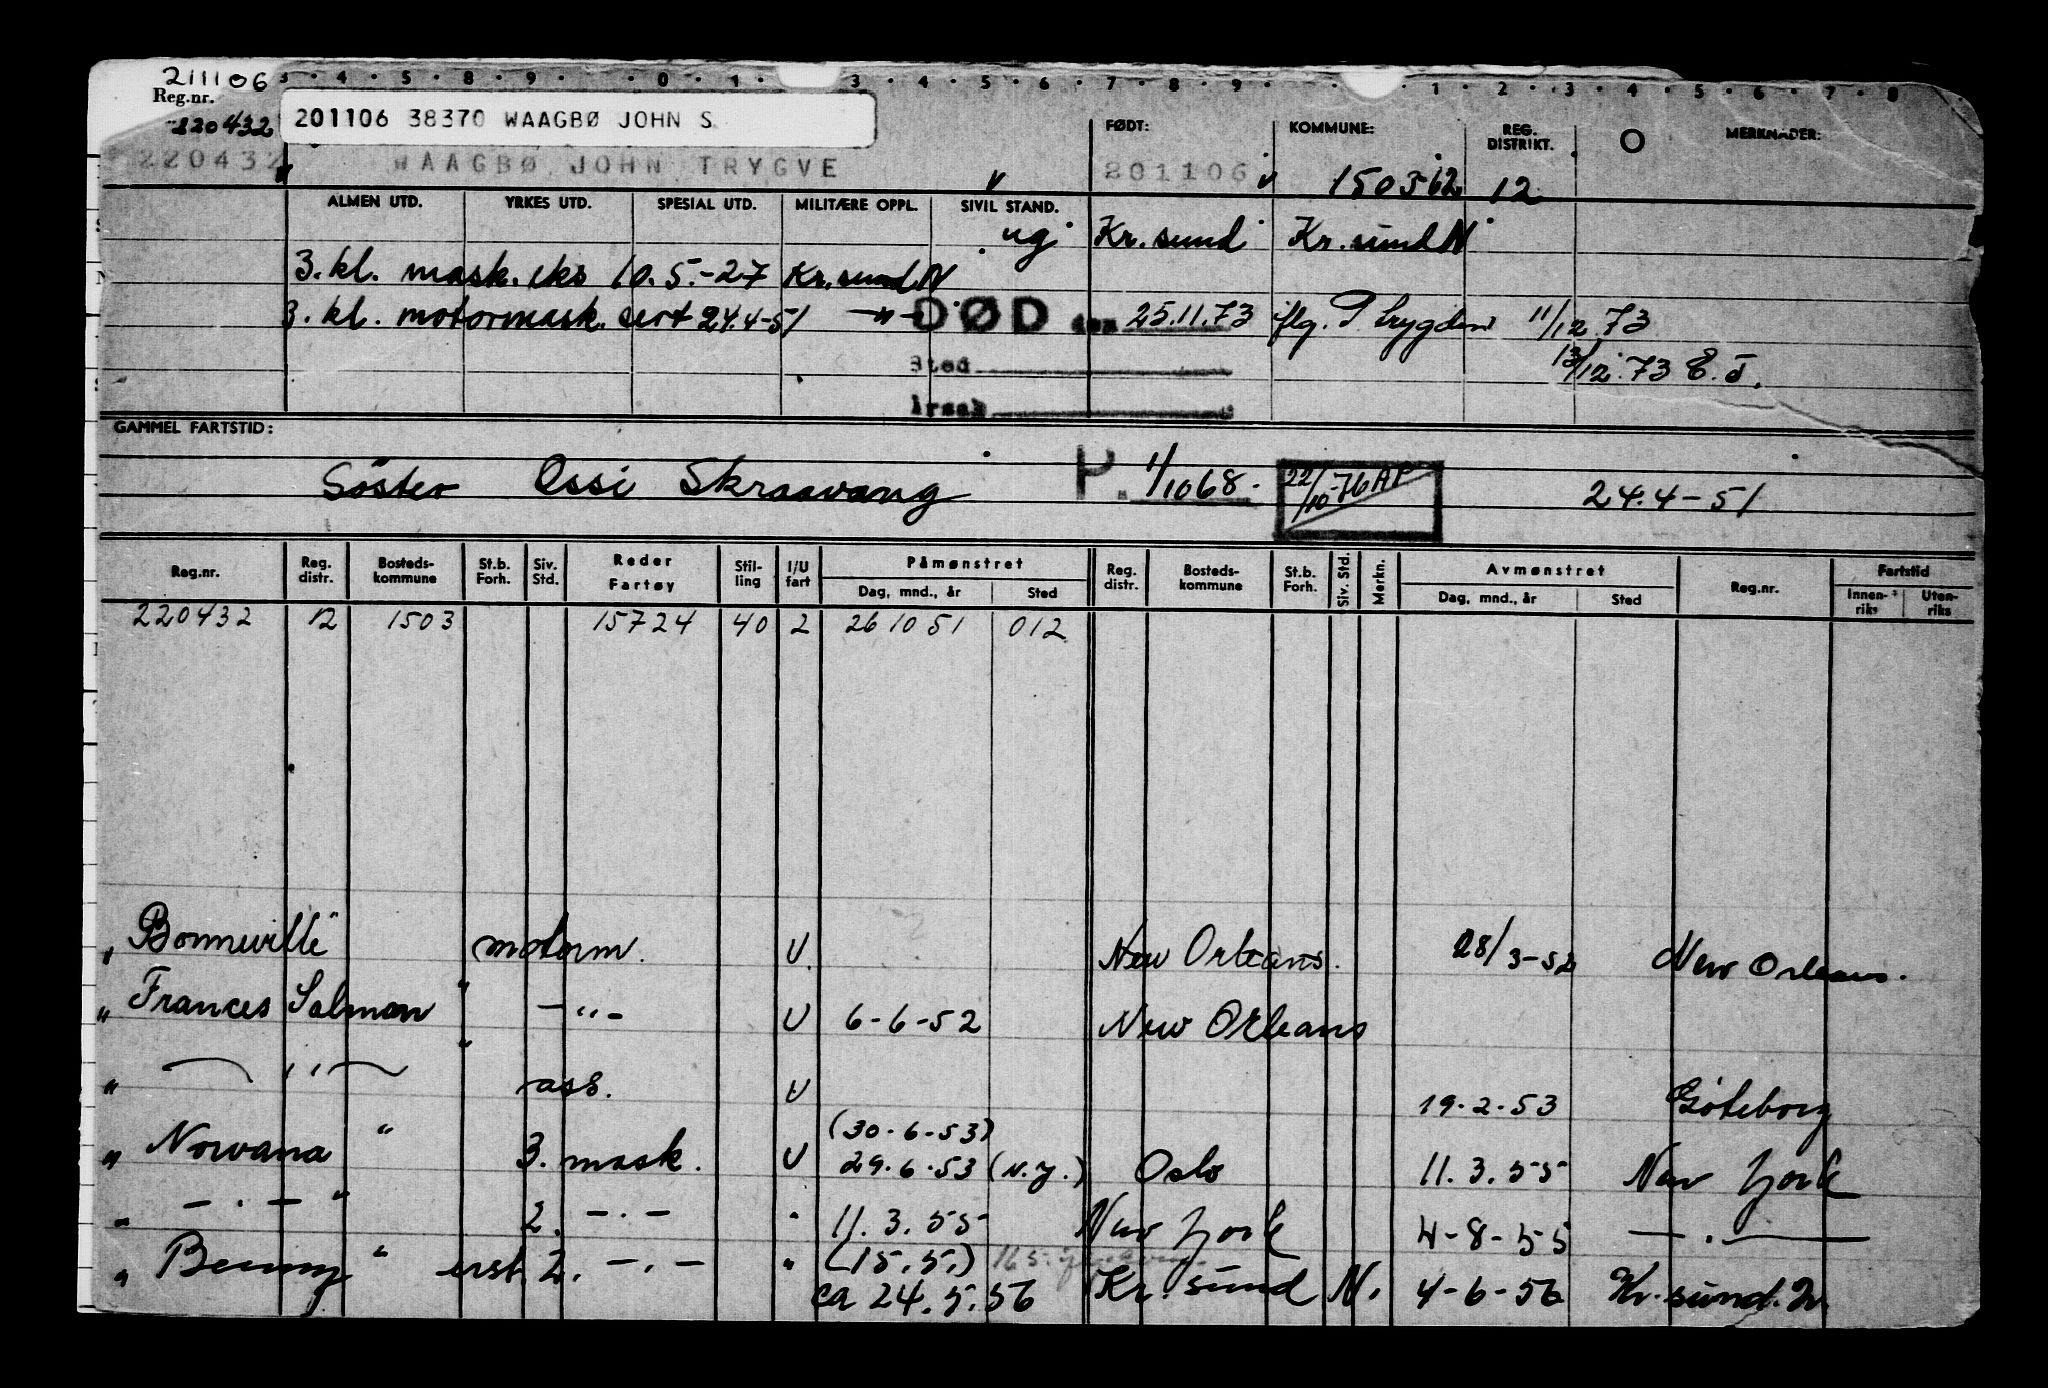 211106 3 · 4 · 5 · 8 · 9 · · 0 · 1 · 3 · 4 · 5 · 6 · 7 · 8 · 9 · 1 · 2 · 3 · 4 · 5 · 6 · 7 · 8
Reg.nr.
220432 201106 38370 WAAGBØ JOHN S
220432 WAAGBØ JOHN TRYGVE FØDT: 201106 KOMMUNE: 1503 62 REG. DISTRIKT. 12 O MERKNADER:
ALMEN UTD. YRKES UTD. SPESIAL UTD. MILITÆRE OPPL. SIVIL STAND.
ug Kr.sund Kr.sund N
3. kl. mask. eks 10.5.-27 Kr.sund N
3. kl. motormask. sert 24.4-51 —"— DØD den 25.11.73 iflg. P. trygden 11/12 73
Sted 13/12.73 E.J.
Årsak
GAMMEL FARTSTID:
Söster Ossi Skraavang P. 1/10 68. 22/10-76 AP 24.4-51
Reg.nr. Reg. distr. Bosteds-kommune St.b. Forh. Siv. Std. Reder Fartøy Stil-ling I/U fart Påmønstret Dag, mnd., år Sted Reg. distr. Bosteds-kommune St.b. Forh. Siv. Std. Merkn. Avmønstret Dag, mnd., år Sted Reg.nr. Fartstid Innen-riks Uten-riks
220432 12 1503 15724 40 2 26 10 51 012
" Bonneville" motorm. U. New Orleans. 28/3-52 New Orleans.
" Frances Salman " —"— U 6-6-52 New Orleans
" —"— " ass. U 19.2.53 Göteborg
(30.6-53)
" Norvana " 3. mask. U 29.6.53 (N.Y.) Oslo 11.3.55 New York
" — . — " 2. — . — " 11.3.55 New York 4-8-55 — . —
" Benny " erst. 2. — . — " (15.5.)
ca 24.5.56 Kr.sund N. 4-6-56 Kr.sund.N.